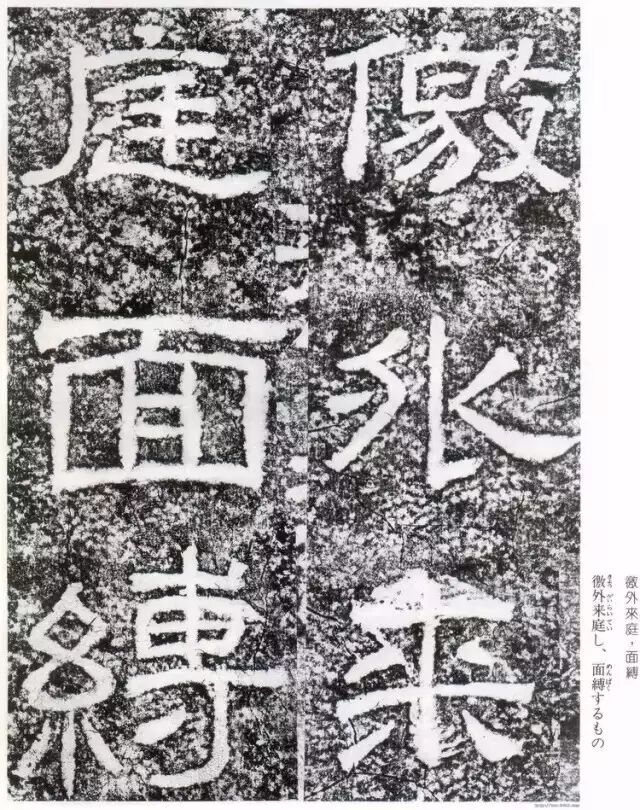 徼外來庭，面縛
徼外来庭し、面縛するもの
徼外来
庭面縛